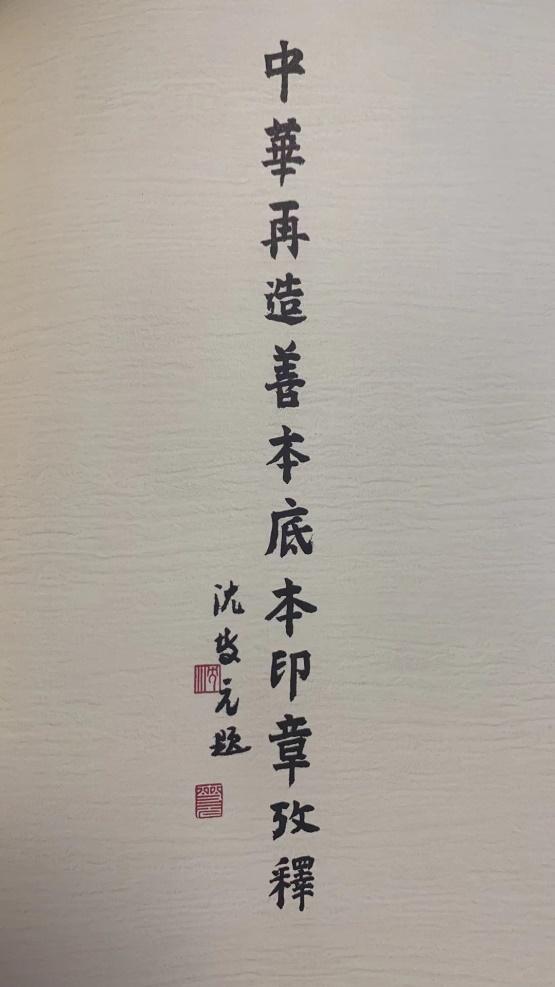 中華再造善本底本印章攷釋
沈燮元題